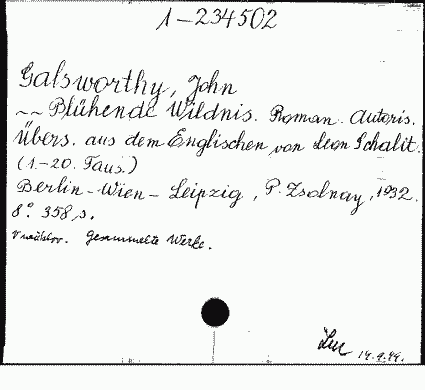 1-234502
Galsworthy, John
~~ Blühende Wildnis. Roman. Autoris.
Übers. aus dem Englischen von Leon Schalit.
(1.-20. Taus.)
Berlin-Wien-Leipzig, P. Zsolnay, 1932.
8°. 358 S.
Gesammelte Werke.